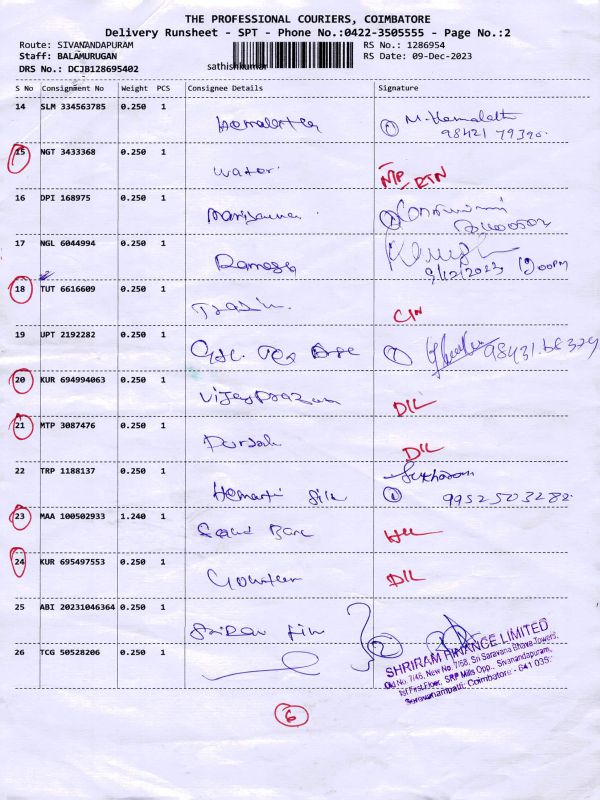 THE PROFESSIONAL COURIERS, COIMBATORE
Delivery Runsheet - SPT - Phone No.:0422-3505555 - Page No.:2
Route: SIVANANDAPURAM
RS No.: 1286954
Staff: BALAMURUGAN
RS Date: 09-Dec-2023
DRS No.: DCJB128695402
sathishkumar
S No Consignment No Weight PCS Consignee Details Signature
14 SLM 334563785 0.250 1
Hemalatha
1 M. Hemalath
98421 79390.
15 NGT 3433368 0.250 1
water.
NTP RTN
16 DPI 168975 0.250 1
17 NGL 6044994 0.250 1
Ramesh
9/12/2023 1200PM
18 TUT 6616609 0.250 1
19 UPT 2192282 0.250 1
20 KUR 694994063 0.250 1
DIL
21 MTP 3087476 0.250 1
DIL
22 TRP 1188137 0.250 1
1 9952503282.
23 MAA 100502933 1.240 1
24 KUR 695497553 0.250 1
DIL
25 ABI 20231046364 0.250 1
2
26 TCG 50528206 0.250 1
SHRIRAM FINANCE LIMITED
Old No. 7/46, New No. 7/68, Sri Saravana Bhava Towers,
1st First Floor, SRP Mills Opp., Sivanandapuram,
Saravanampatti, Coimbatore - 641 035.
6